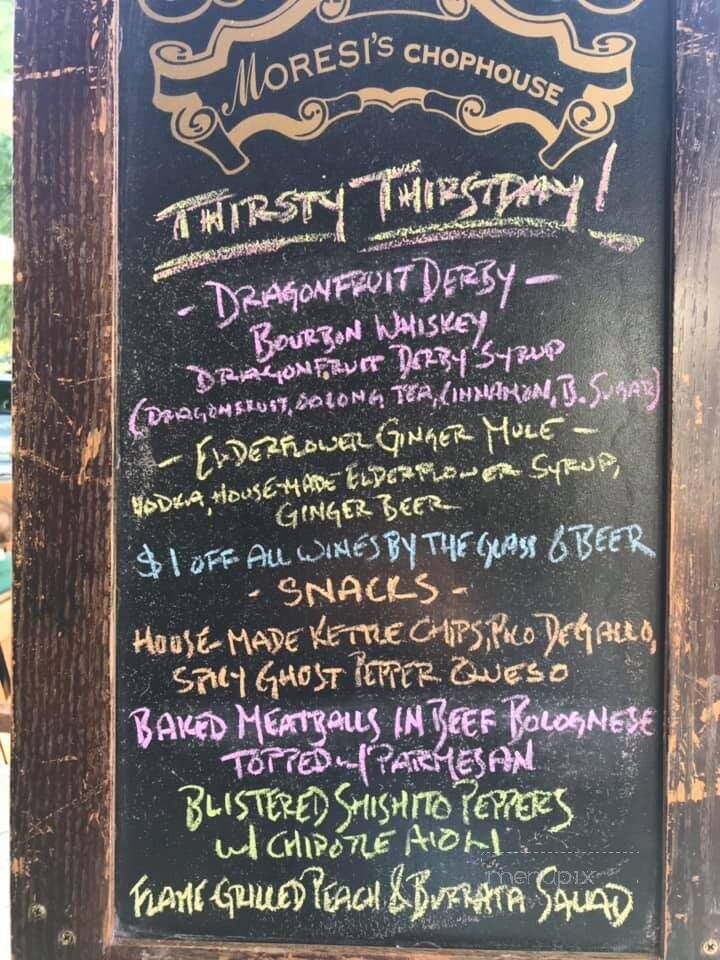 MORESI'S CHOPHOUSE
THIRSTY THIRSTDAY!
- DRAGONFRUIT DERBY -
BOURBON WHISKEY
DRAGONFRUIT DERBY SYRUP
(DRAGONFRUIT, OOLONG TEA, CINNAMON, B. SUGAR)
- ELDERFLOWER GINGER MULE -
VODKA, HOUSE-MADE ELDERFLOWER SYRUP,
GINGER BEER
$1 OFF ALL WINES BY THE GLASS & BEER
- SNACKS -
HOUSE-MADE KETTLE CHIPS, PICO DE GALLO,
SPICY GHOST PEPPER QUESO
BAKED MEATBALLS IN BEEF BOLOGNESE
TOPPED w/ PARMESAN
BLISTERED SHISHITO PEPPERS
w/ CHIPOTLE AIOLI
menupix
FLAME GRILLED PEACH & BURRATA SALAD